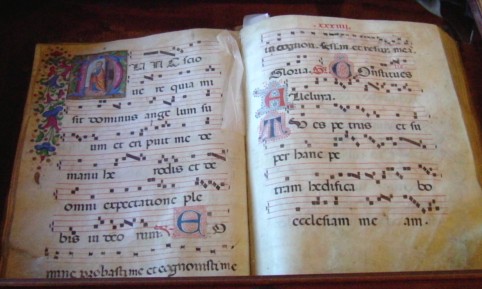 NUNC scio
ve re quia mi
sit dominus ange lum su
um et eri puit me de
manu he rodis et de
omni expectatione ple
bis iu deo rum. DO
mine probasti me et cognovisti me
et resur. mea.
Gloria. COnstitues
ALleluia.
TU es pe trus et su
per hanc pe
tram hedifica bo
ecclesiam me am.